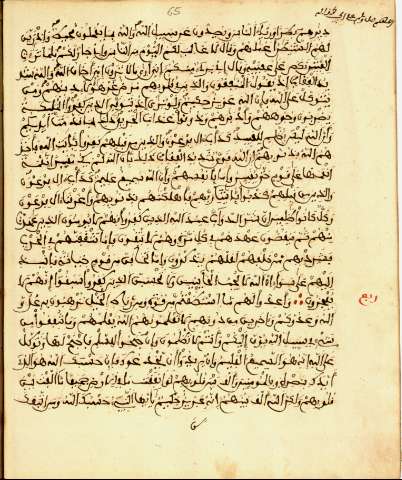 65
ديرهم بطرا ورئاء الناس ويصدون عن سبيل الله والله بما يعملون محيط وإذ زين
لهم الشيطن أعملهم وقال لا غالب لكم اليوم من الناس وإني جار لكم فلما تراءت
الفئتن نكص على عقبيه وقال إني بريء منكم إني أرى ما لا ترون إني أخاف الله والله شديد
العقاب إذ يقول المنفقون والذين في قلوبهم مرض غر هؤلاء دينهم ومن
يتوكل على الله فإن الله عزيز حكيم ولو ترى إذ يتوفى الذين كفروا الملئكة
يضربون وجوههم وأدبرهم وذوقوا عذاب الحريق ذلك بما قدمت أيديكم
وأن الله ليس بظلم للعبيد كدأب ءال فرعون والذين من قبلهم كفروا بئايت الله فأخذ
هم الله بذنوبهم إن الله قوي شديد العقاب ذلك بأن الله لم يك مغيرا نعمة
أنعمها على قوم حتى يغيروا ما بأنفسهم وأن الله سميع عليم كدأب ءال فرعون
والذين من قبلهم كذبوا بئايت ربهم فأهلكنهم بذنوبهم وأغرقنا ءال فرعون
وكل كانوا ظلمين إن شر الدواب عند الله الذين كفروا فهم لا يومنون الذين عهدت
منهم ثم ينقضون عهدهم في كل مرة وهم لا يتقون فإما تثقفنهم في الحرب
فشرد بهم من خلفهم لعلهم يذكرون وإما تخافن من قوم خيانة فانبذ
إليهم على سواء إن الله لا يحب الخائنين ولا تحسبن الذين كفروا سبقوا إنهم لا
يعجزون وأعدوا لهم ما استطعتم من قوة ومن رباط الخيل ترهبون به عدو
ربع
الله وعدوكم وءاخرين من دونهم لا تعلمونهم الله يعلمهم وما تنفقوا من
شيء في سبيل الله يوف إليكم وأنتم لا تظلمون وإن جنحوا للسلم فاجنح لها وتوكل
على الله إنه هو السميع العليم وإن يريدوا أن يخدعوك فإن حسبك الله هو الذي
أيدك بنصره وبالمومنين وألف بين قلوبهم لو أنفقت ما في الأرض جميعا ما ألفت بين
قلوبهم ولكن الله ألف بينهم إنه عزيز حكيم يأيها النبي حسبك الله ومن اتبعك